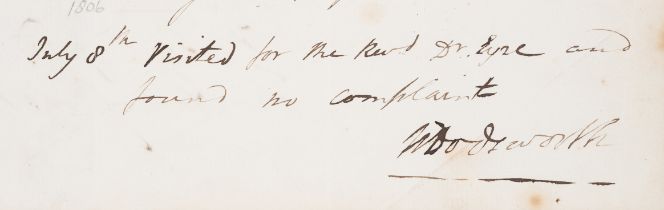 1806
July 8th Visited for the Revd Dr. Eyre and
found no complaint